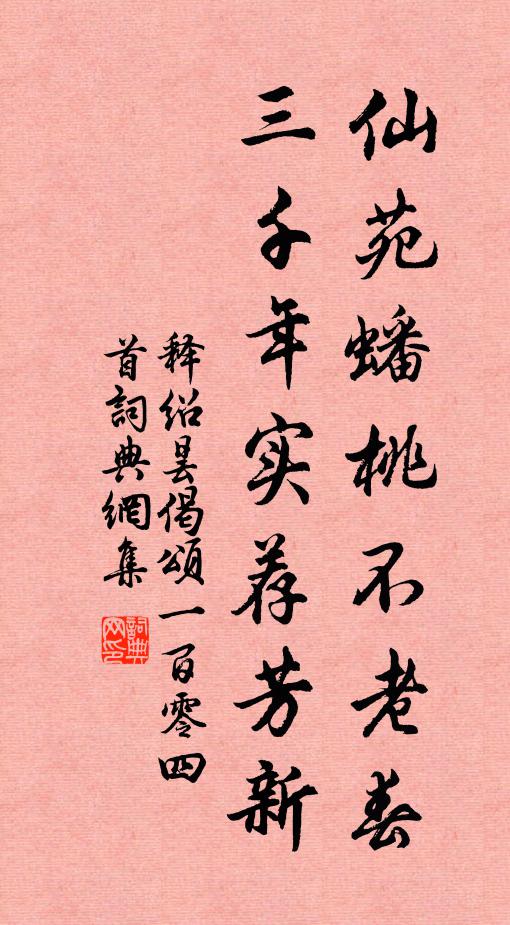 仙苑蟠桃不老春
三千年实荐芳新
释绍昙偈颂一百零四
首詞典網集
詞典
网印